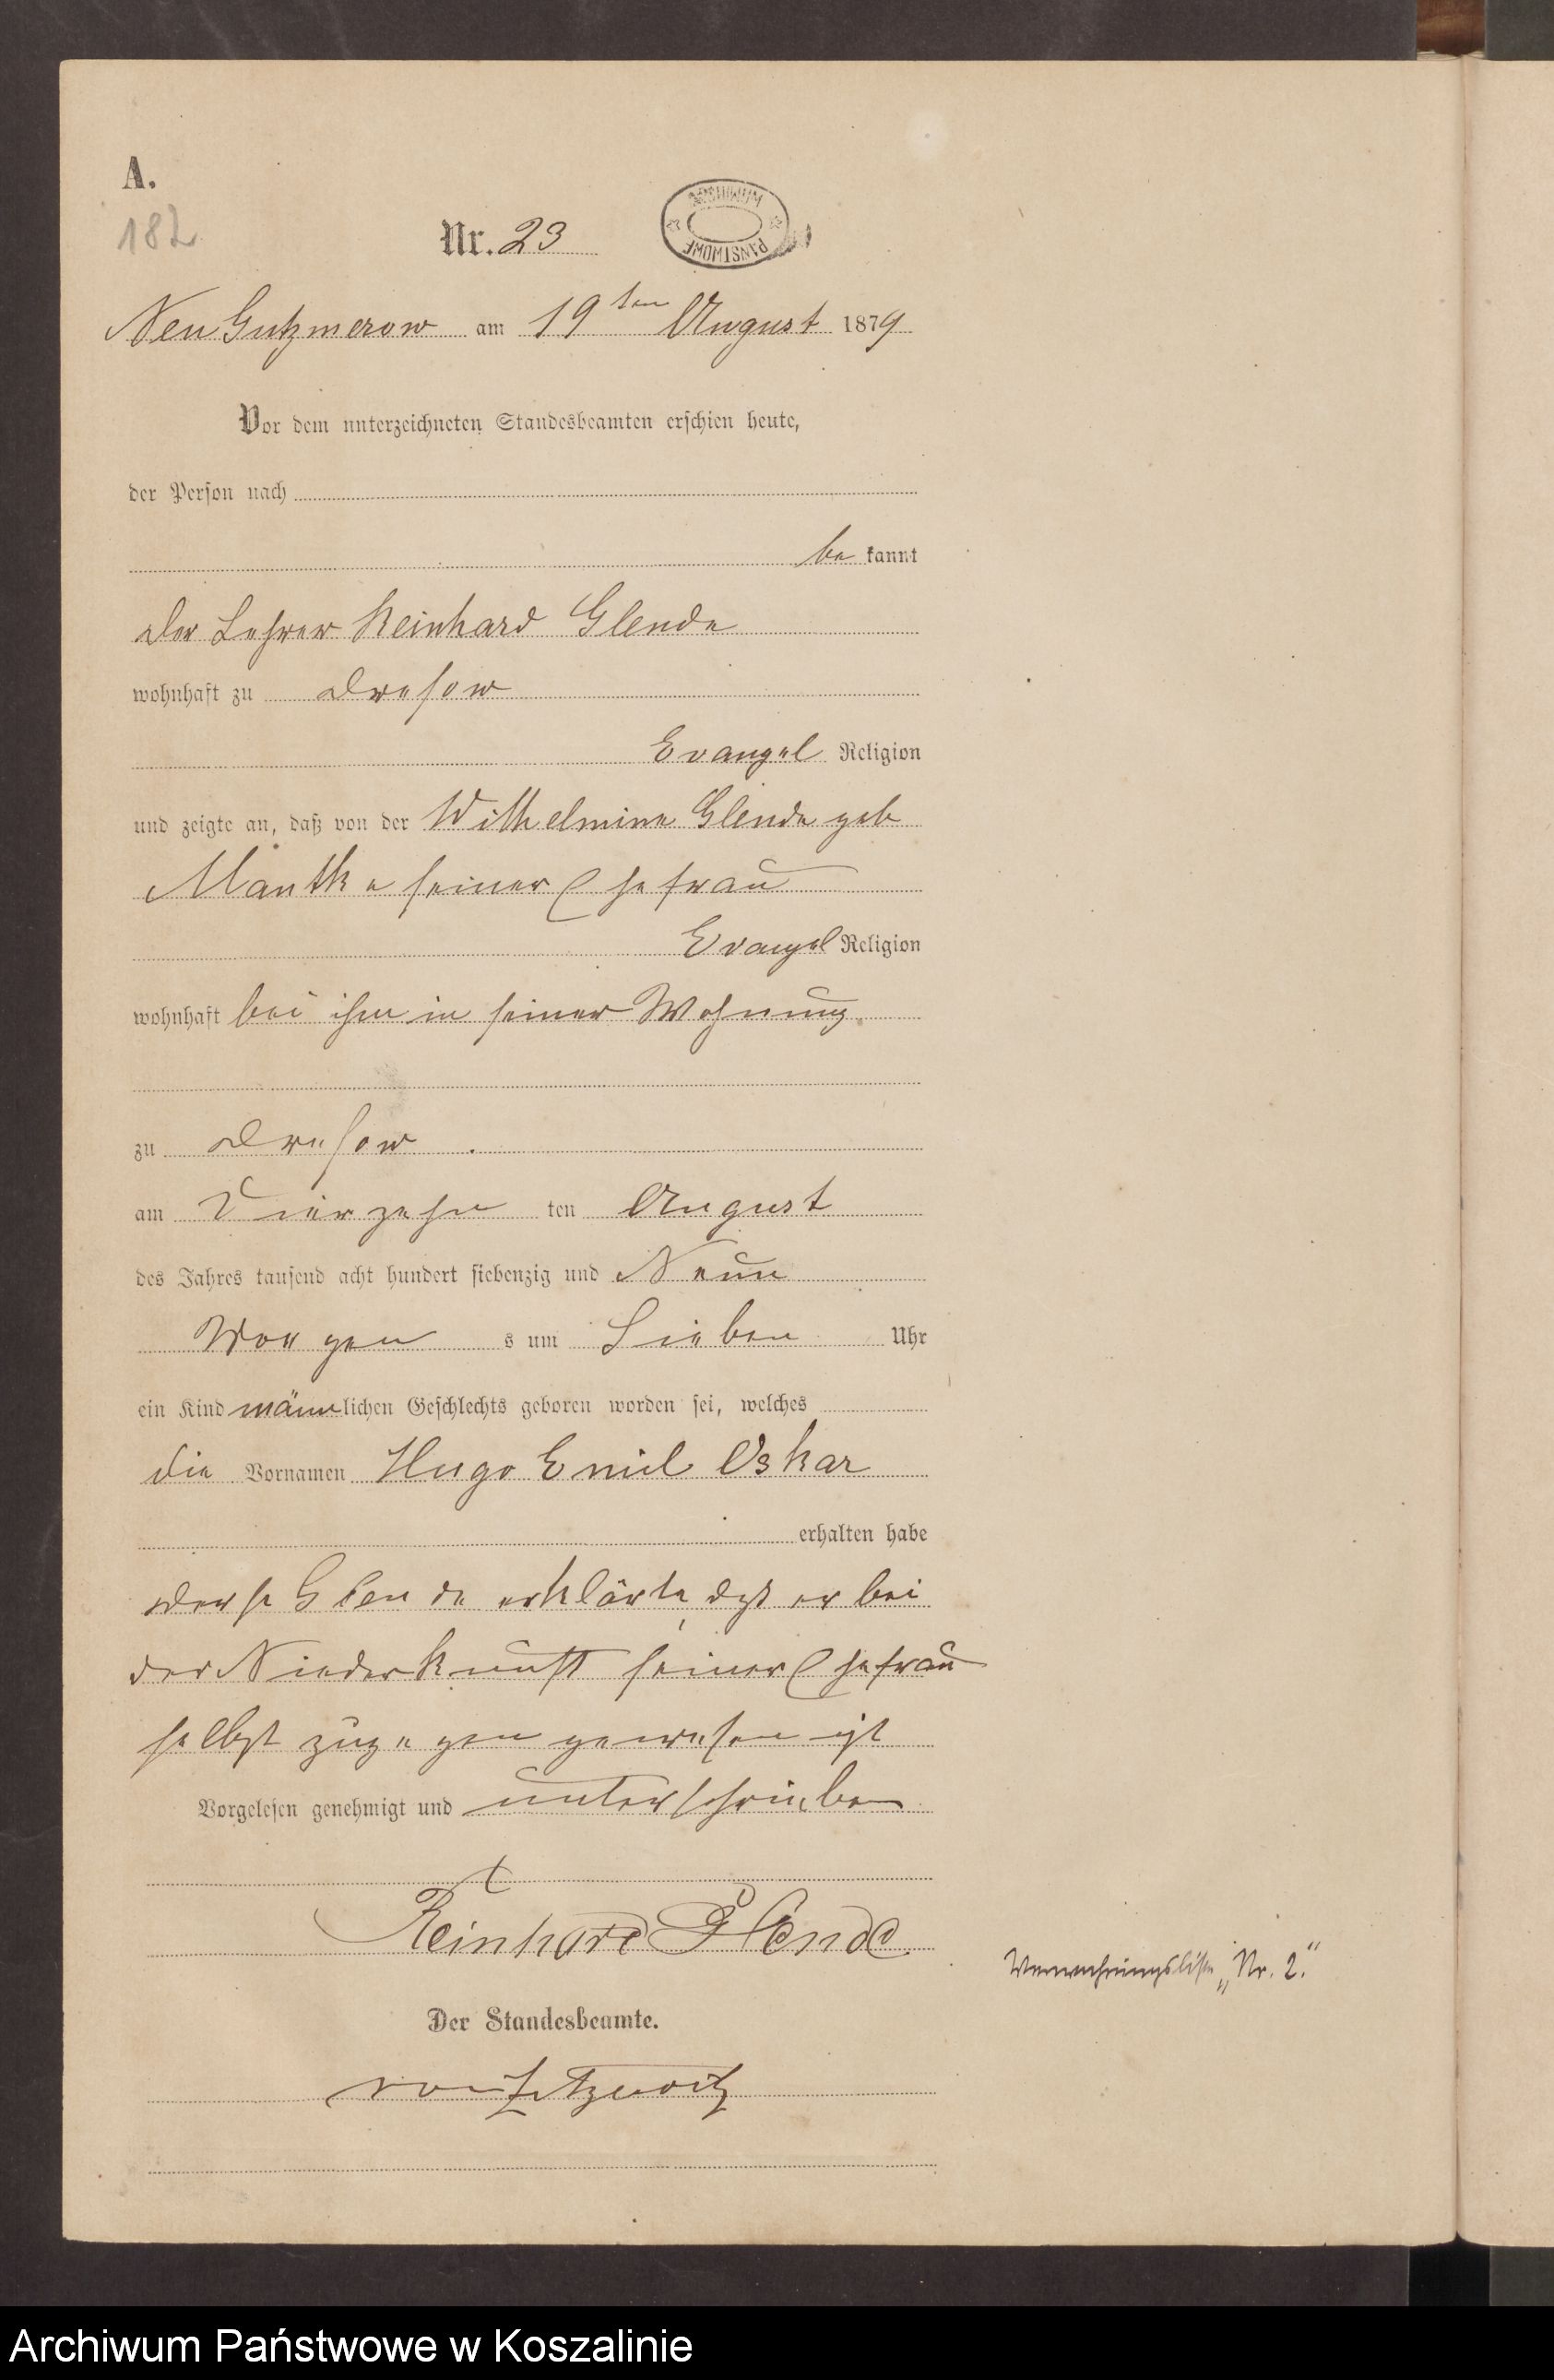 A.
182
Nr. 23
ARCHIWUM PAŃSTWOWE
Neu Gutzmerow am 19ten August 1879
Vor dem unterzeichneten Standesbeamten erschien heute,
der Person nach
be kannt
der Lehrer Reinhard Glende
wohnhaft zu Dresow
Evangel Religion
und zeigte an, daß von der Wilhelmine Glende geb
Mantke seiner Ehefrau
Evangel Religion
wohnhaft bei ihm in seiner Wohnung
zu Dresow
am Vierzehn ten August
des Jahres tausend acht hundert siebenzig und Neun
Morgen s um Sieben Uhr
ein Kind männlichen Geschlechts geboren worden sei, welches
die Vornamen Hugo Emil Oskar
erhalten habe
Glende erklärte, daß er bei
der Niederkunft seiner Ehefrau
selbst zugegen gewesen ist
Vorgelesen genehmigt und unterschrieben
Reinhard Glende
Nr. 2."
Der Standesbeamte.
von Zitzewitz
Archiwum Państwowe w Koszalinie